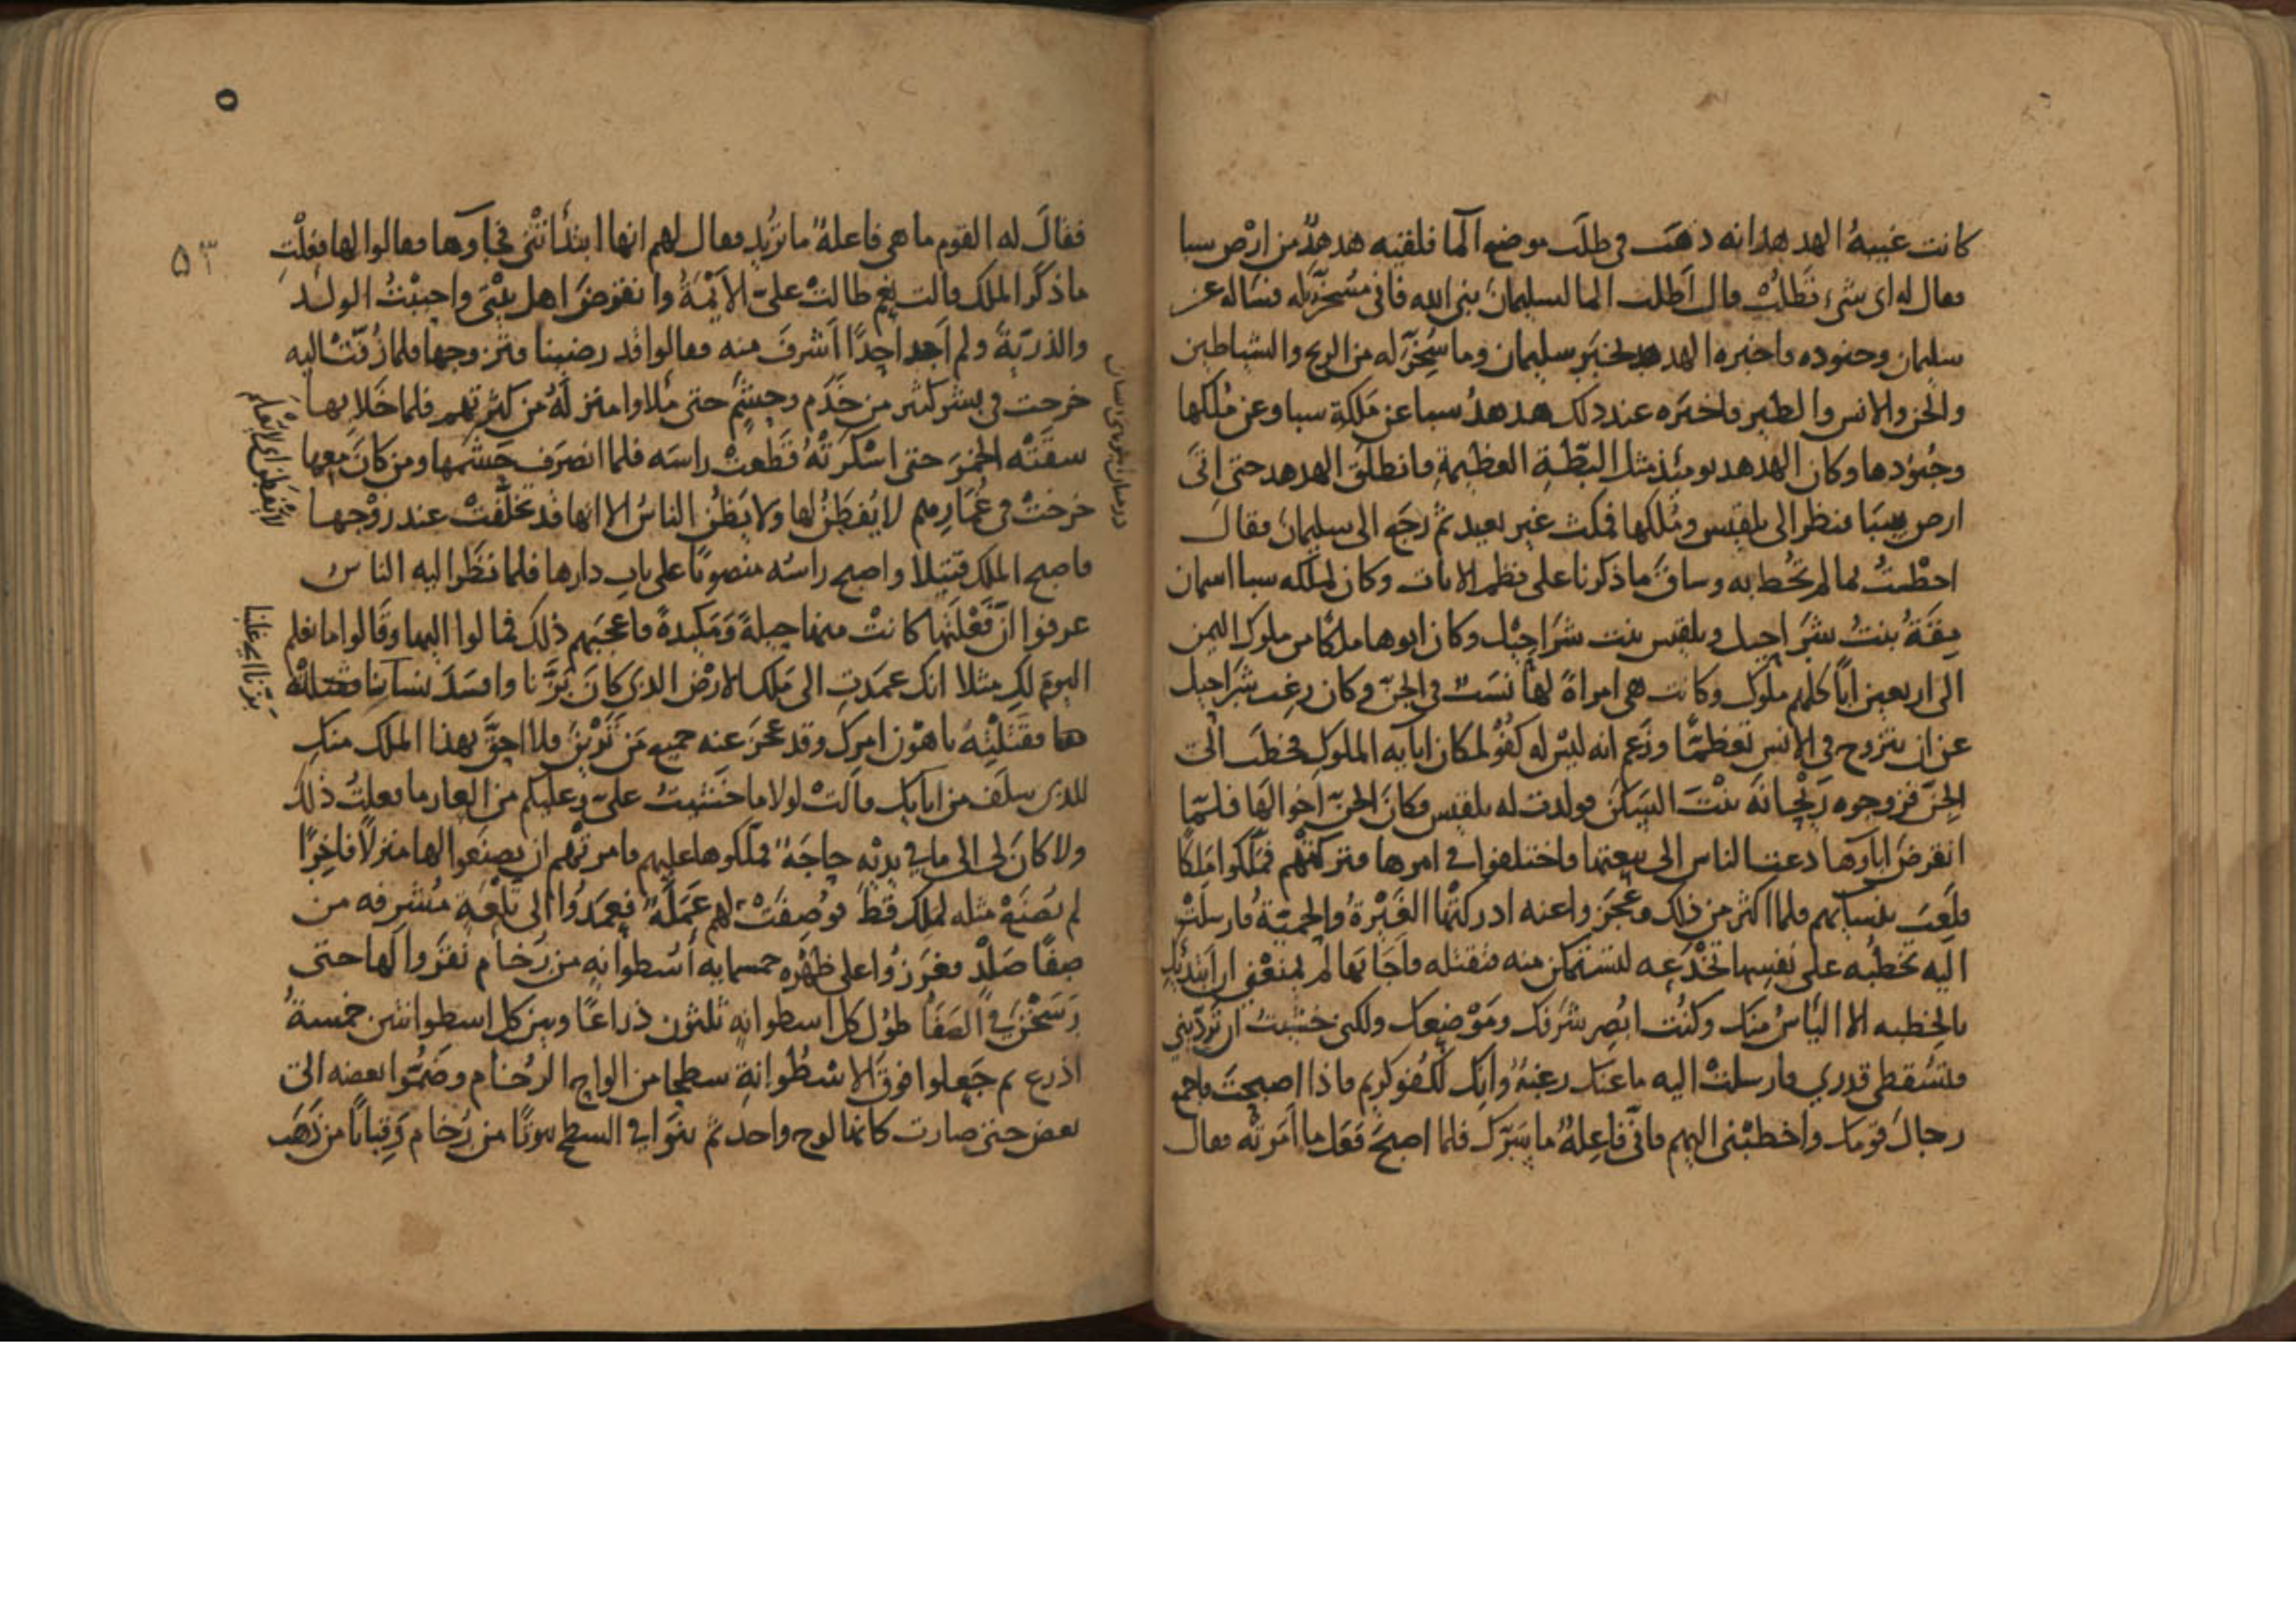 كانت غيبةُ الهدهد انه ذهب في طلب موضع الما فلقيه هدهدٌ من ارْض سبا
فقال له اى شىء تَطلُبُ قال اَطلب الما لسليمان نبى الله فانى مُسَخَّرٌ له فسَاله عن
سليمان وجنوده فاخبره الهدهد بخبر سليمان وما سُخِّرَ له من الريح والشياطين
والجن والانس والطير فاخبَره عند ذلك هدهدُ سبا عن مَلِكة سبا وعن مُلكها
وجُنودها وكان الهدهد يومئذ مثل البَطّةِ العظيمةِ فانطلقَ الهدهد حتى اتَى
ارض سبَا فنظر الى بلقيس ومُلكها فمكث غير بعيد ثم رجَع الى سليمان فقالَ
احطْتُ بما لم تُحُط به وساقَ ما ذكرنا على نظم الايات وكان لملكه سبا اسمان
يِقَةُ بنتُ شرَاحيل وبلقيس بنت شرَاحِيْل وكان ابوها ملكًا من ملوك اليمن
الى اربعين ابًا كلهم ملوك وكانت هى امراةً لها نسَبٌ في الجنّ وكان رغب شَرَاحيل
عن ان يتزوج في الانس تعظمًا وزَعم انه ليْس له كُفؤٌ لمكان ابايه الملوكِ فخطَب الى
الجنّ فزوجوه رَيْحَانَة بنْتَ السَكَن فولدت له بلقيس وكانَ الجنّ اخوالهَا فلمّا
انقرضَ اباوها دعت الناس الى بيعتها فاختلفوا في امرها فتركتْهم فمَلّكوا مَلِكًا
فلَعِبَ بنسايهم فلما اكثر من ذلك وعَجَزوا عنه ادركتْها الغَيْرةُ والحَميّةُ فارسلَتْ
اليه تخطبُه على نَفسِها تَخْدَعه لتستمكن منه فتقتله فاجَابَها لم يمنعْنى ان ابتديكِ
بالخِطبه الا الياسُ منك وكنتُ ابصِر شرَفك ومَوْضِعك ولكنى خشيتُ ان تَرُدّينى
فيَسْقط قدرى فارسلتْ اليه ما عنك رغبةٌ وانكَ لَكُفؤ كريم فاذا اصبحتَ فاجمع
رجالَ قومك واخطبْنى اليهم فانى فاعِلةٌ ما يَسُرّك فلما اصبحَ فَعَل ما اَمَرتْه فقال
فقالَ له القوم ما هى فاعلةٌ ما تريد فقال لهم انها ابتدَاتْنى فجاوها فقالوا لها فعَلْتِ
ما ذكر الملك قالت نعَم طالتْ علىّ الايْمَةُ وانقرضَ اهل بيْتى واحببْتُ الولد
والذريّةَ ولم اَجد احدًا اَشرفَ منه فقالوا قد رضينا فتزوجها فلما زُفّتْ اليه
خرجت في بشر كثير من خَدَم وحِشَمٍ حتى مَلاوا منزلَهُ من كثرتهم فلما خَلا بها
سقَتْه الخمرَ حتى اسْكرَتْهُ قَطَعتْ راسَه فلما انصرَف حَشَمها ومن كانَ معها
خرجتْ في غُمَارهم لا يُفطَنُ لها ولا يَظُن الناسُ الا انها قد تخلّفتْ عند زوْجها
فاصبح الملك قتيلا واصبح راسُه منصوبًا على باب دارها فلما نظَر اليه الناس
عرفوا انّ فَعْلَتَها كانتْ منها حيلةً وَمَكيدةً فاعجبَهم ذلك فمالوا اليها وقَالوا ما نعلم
اليومَ لكِ مثلا انك عمَدتِ الى مَلِك الارض الذى كانَ بَزَّنا وافسَدَ نسآءنا
فقَتلتِهُ باهْوَن امرِكِ وقد عجَزَ عنه جميع مَن تَرَيْنَ فلا احقَّ بهذا الملك منكِ
للذى سلَف من ابايك قالتْ لولا ما خَشيتُ علىّ وعليكم من العار ما فعلتُ ذلك
ولا كانَ لى الى ما في يديْه حاجَةٌ فملّكوها عليهم فامرتْهم ان يصنَعوا لها منزلاً فاخِرًا
لم يُصْنَعْ مثله لملك قط فوُصِفَتْ لهم عَمَلَةٌ فعمَدُوا الى تَلْعَةٍ مُشرفه من
صفًا صَلْدٍ فغرَزُوا على ظهْره خمسمايه اُسْطوانه من رخام نقرُوا لها حتى
رَسَخْنَ في الصَفَا طوْل كل اسطوانه ثلثون ذراعًا وبين كل اسطوانتين خمسةُ
اذرع ثم جَعلوا فوقَ الاسْطُوانةِ سطحا من الواح الرُخام وضمُّوا بعضه الى
بعض حتى صارت كانها لوح واحد ثم بنَوا في السطح بيوتًا من رُخام وَقِبابًا من ذَهَب
لا يُفطَن اى لا يُعلم
بَزّنا اى غلبنا
٥٣